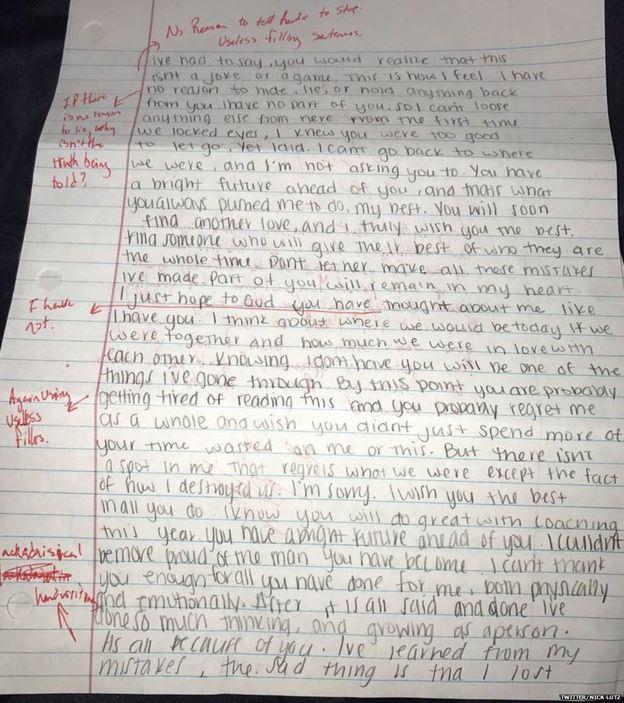 No Reason to tell reader to stop.
Useless filling sentences.
ive had to say, you would realize that this
isnt a joke or a game. This is how I feel. I have
no reason to hide, lie, or hold anything back
from you. I have no part of you, so I can't loose
anything else from here. From the first time
we locked eyes, I knew you were too good
to let go. Yet I did. I cant go back to where
we were, and I'm not asking you to. You have
a bright future ahead of you, and thats what
you always pushed me to do, my best. You will soon
find another love, and I truly wish you the best.
Find someone who will give their best of who they are
the whole time. Dont let her make all these mistakes
ive made. Part of you will remain in my heart.
I just hope to God you have thought about me like
I have you. I think about where we would be today if we
were together and how much we were in love with
each other. Knowing I dont have you will be one of the
things I've gone through. By this point you are probably
getting tired of reading this and you probably regret me
as a whole and wish you didnt just spend more of
your time wasted on me or this. But there isnt
a spot in me that regrets what we were except the fact
of how I destroyed us. I'm sorry. I wish you the best
in all you do. I know you will do great with coaching
this year. you have a bright future ahead of you. I couldn't
be more proud of the man you have become. I can't thank
you enough for all you have done for me, both physically
and emutionally. After it is all said and done ive
done so much thinking, and growing as a person.
Its all because of you. I've learned from my
mistakes, the sad thing is tha I lost
If there
is no reason
to lie, why
isn't the
truth being
told?
I have
not.
Again using
useless
fillers.
handwriting
TWITTER/NICK LUTZ